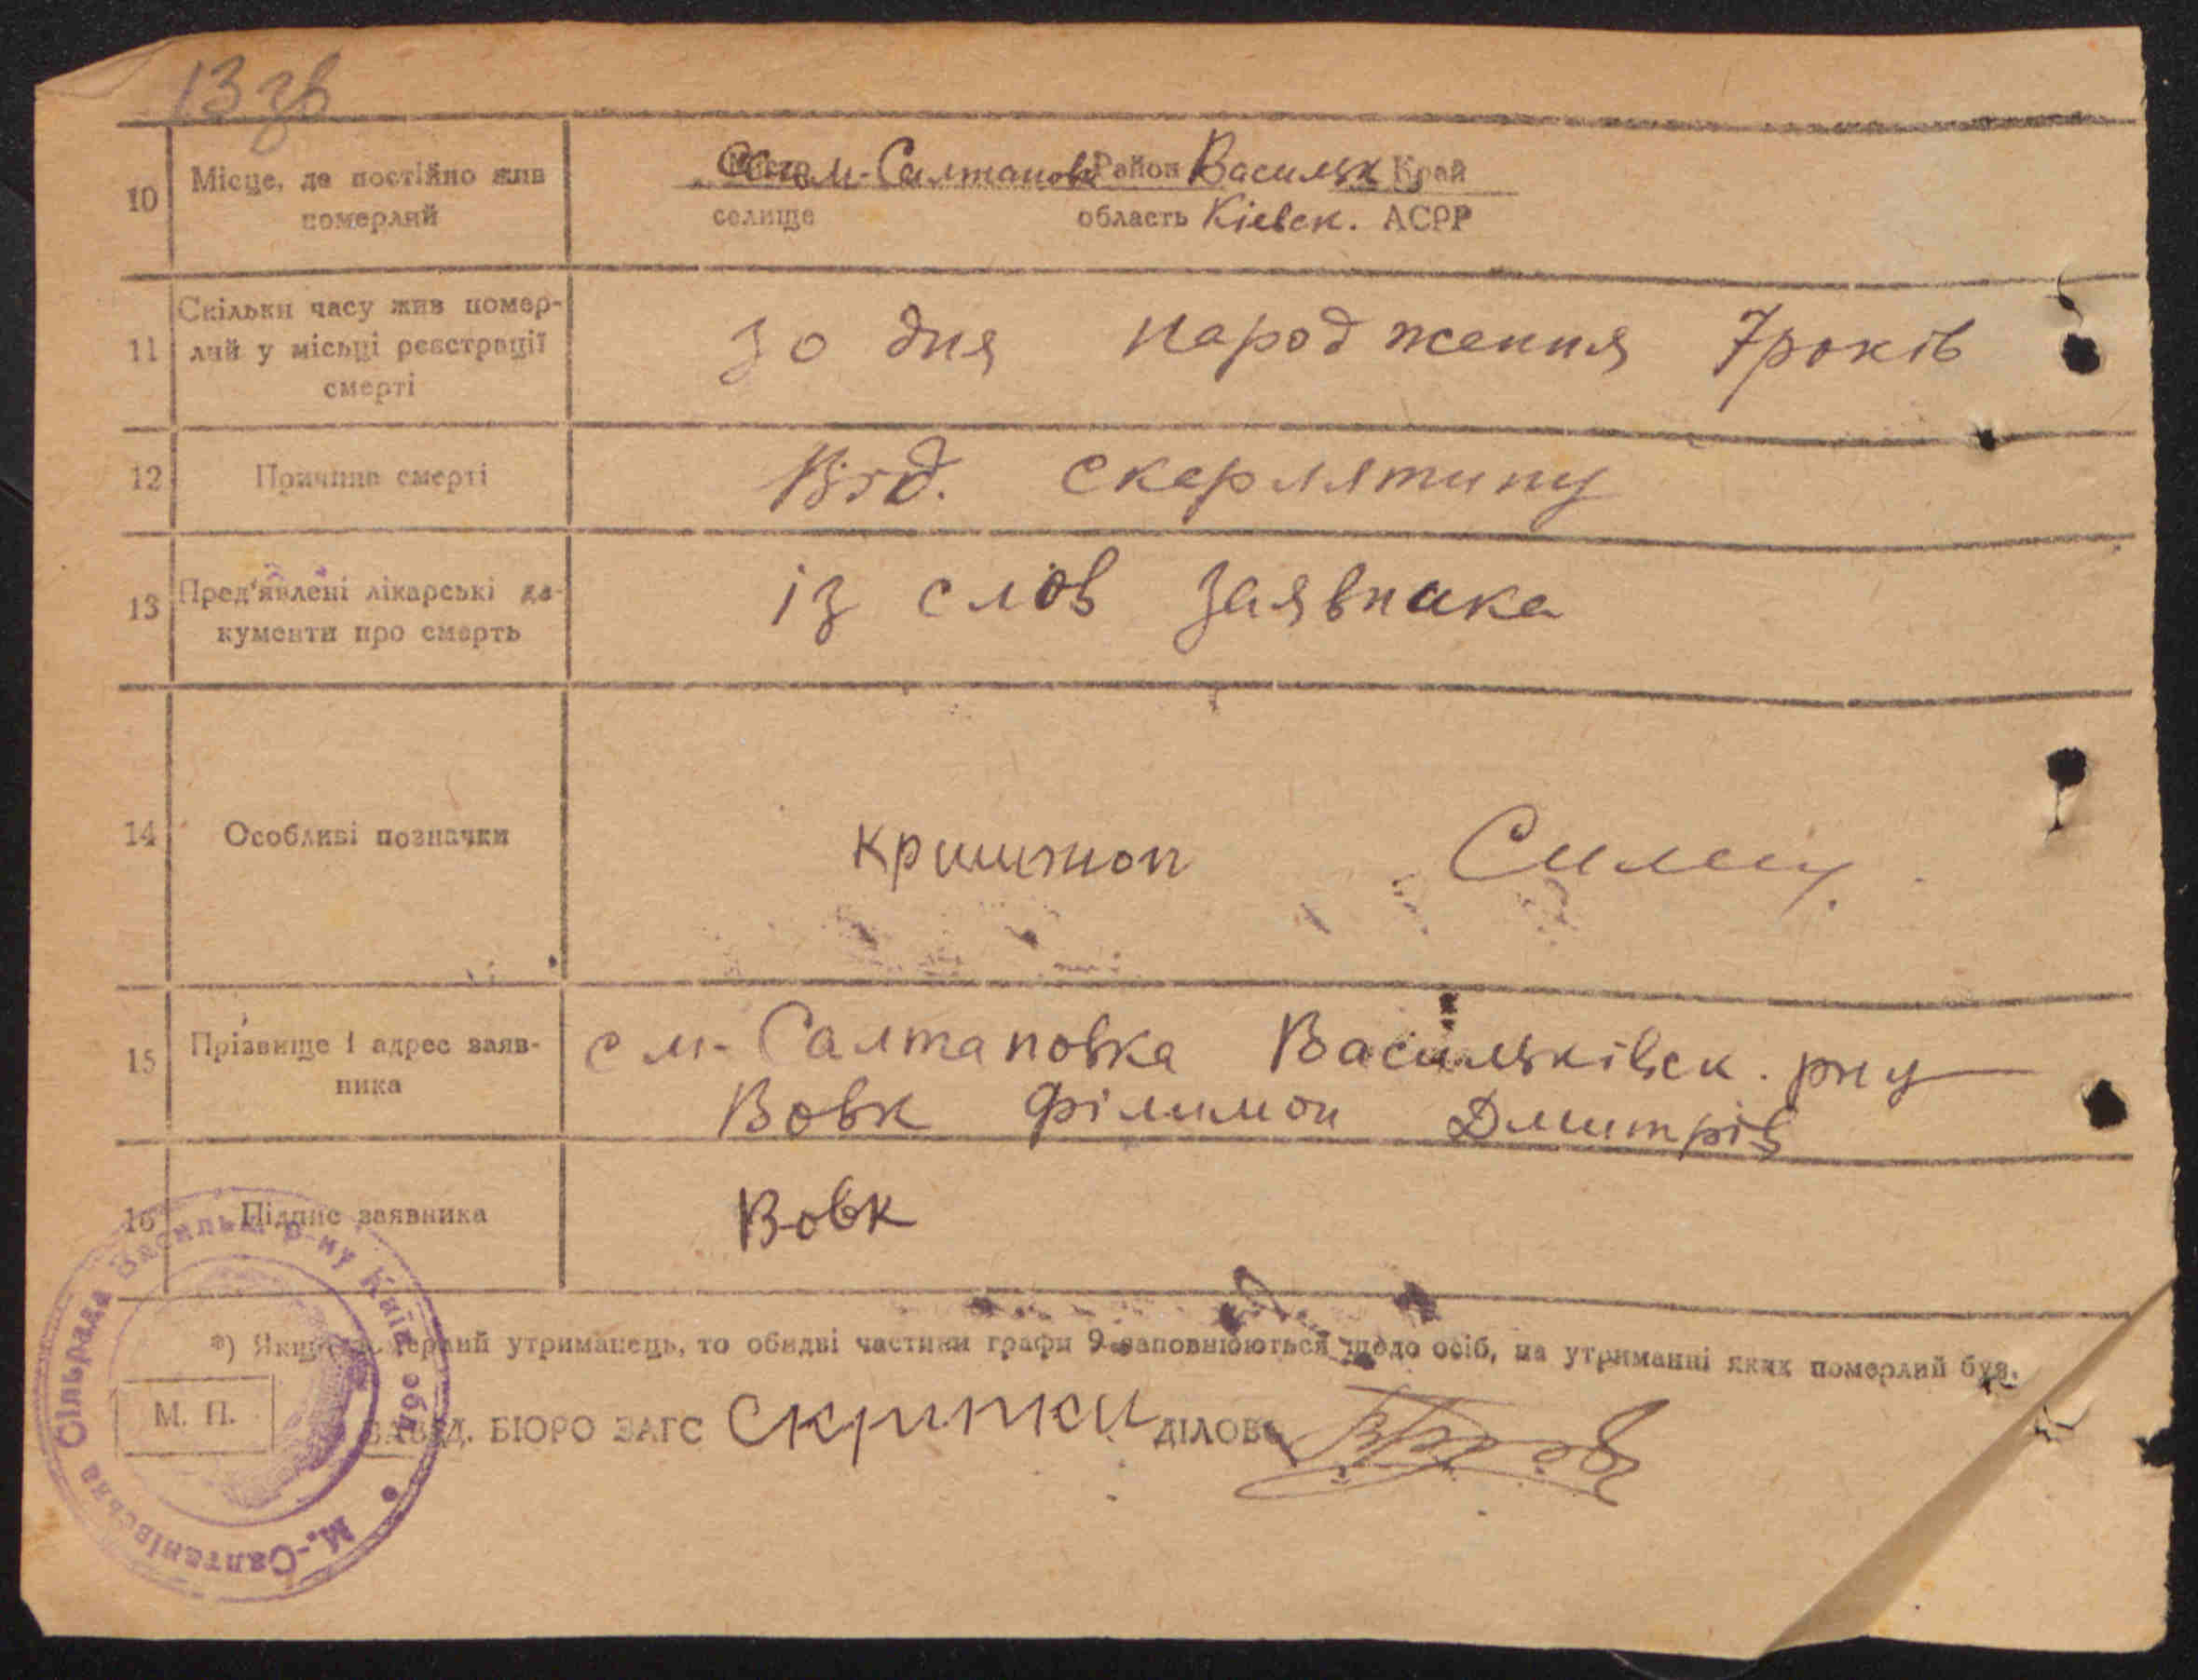 13 зв
10 Місце, де постійно жив
померлий
Місто м-Салтанов Район Васильк Край
селище область Кіевск. АСРР
11 Скільки часу жив помер-
лий у місьці реєстрації
смерті
зо дня народження 7років
12 Причина смерті
Від. скерлятину
13 Пред'явлені лікарські до-
кументи про смерть
із слов заявника
14 Особливі позначки
15 Прізвище і адрес заяв-
ника
с м-Салтановка Васильківск. рну
Вовк Філимон Дмитрів
16 Підпис заявника
Вовк
*) Якщо померлий утриманець, то обидві частини графи 9 заповнюються щодо осіб, на утриманні яких померлий був.
М. П.
ЗАВІД. БЮРО ЗАГС Скрипки ДІЛОВ
М.-Салтанівська Сільрада Васильк. р-ну Київ. обл.